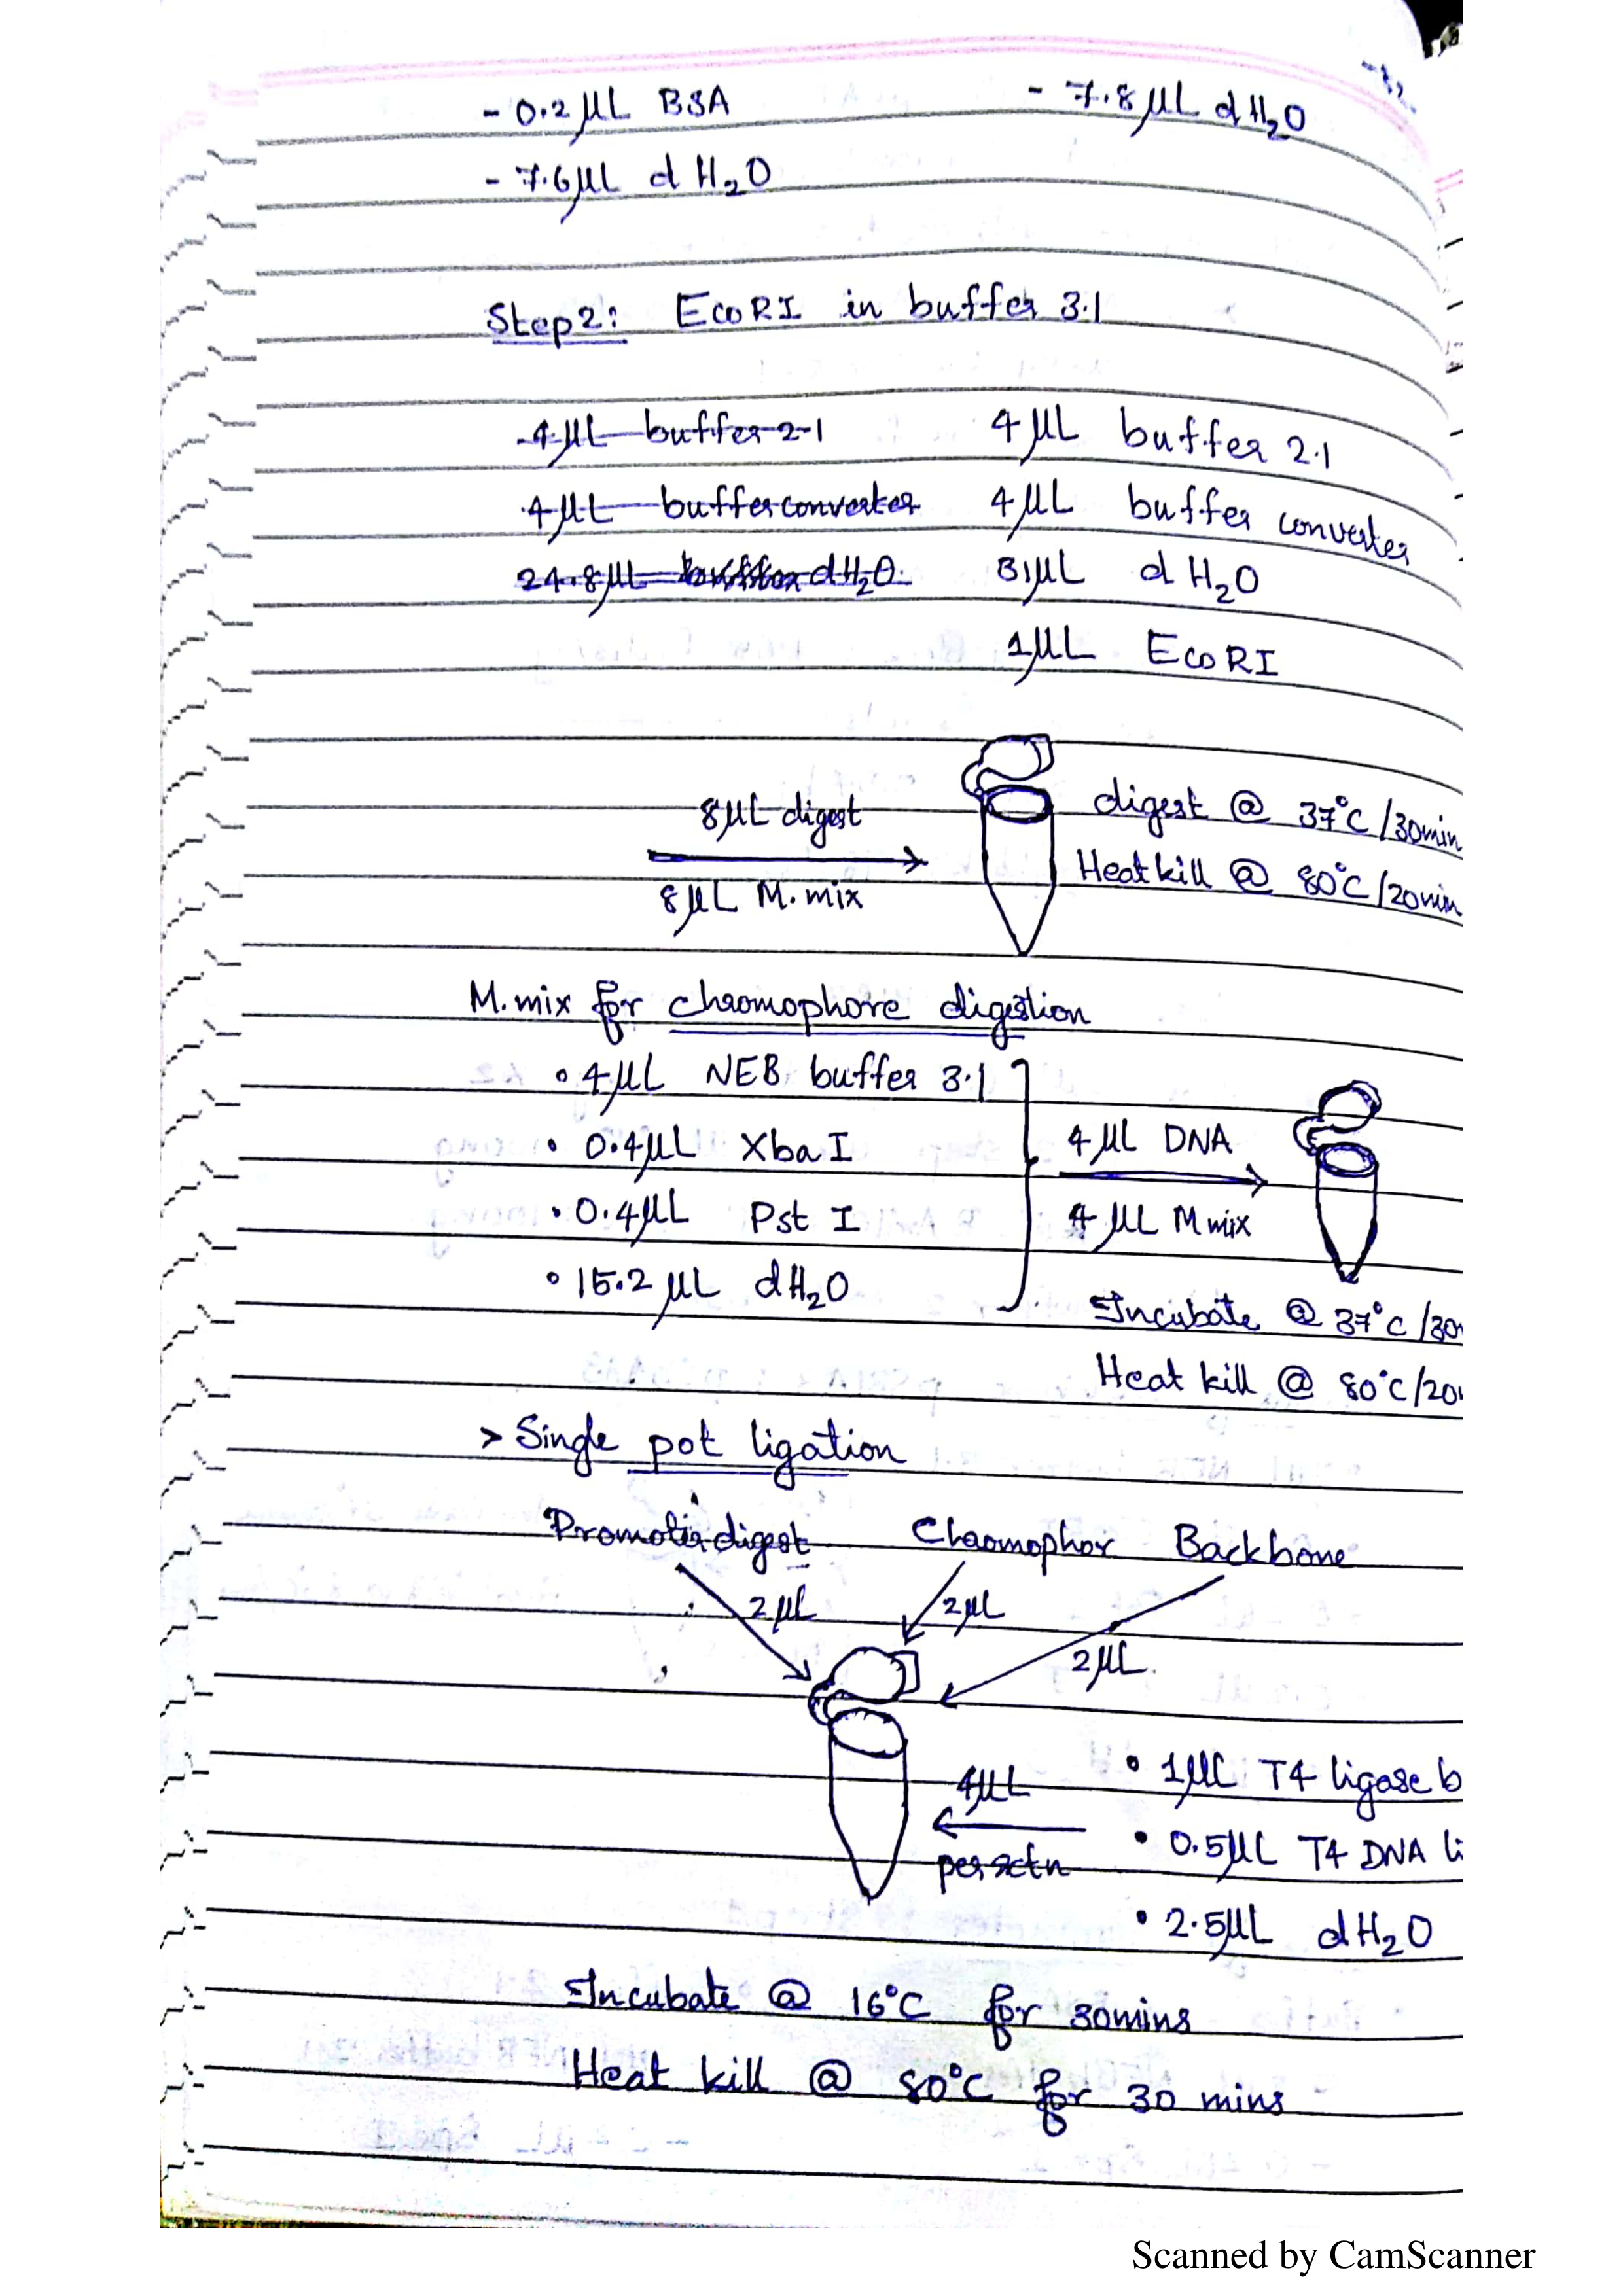 - 0.2 µL BSA - 7.8 µL dH₂O
- 7.6 µL dH₂O
Step 2: EcoRI in buffer 3.1
- 4 µL buffer 2.1 4 µL buffer 2.1
4 µL buffer converter 4 µL buffer converter
24.8 µL buffer dH₂O 31 µL dH₂O
1 µL EcoRI
8 µL digest digest @ 37°C /30min
8 µL M. mix Heat kill @ 80°C /20min
M. mix for chromophore digestion
• 4 µL NEB buffer 3.1
• 0.4 µL Xba I 4 µL DNA
• 0.4 µL Pst I 4 µL M mix
• 15.2 µL dH₂O
Incubate @ 37°C /30
Heat kill @ 80°C /20
> Single pot ligation
Promoter digest Chromophor Backbone
2 µL 2 µL
2 µL
4 µL • 1 µL T4 ligase b
per rctn • 0.5 µL T4 DNA li
• 2.5 µL dH₂O
Incubate @ 16°C for 30mins
Heat kill @ 80°C for 30 mins
Scanned by CamScanner